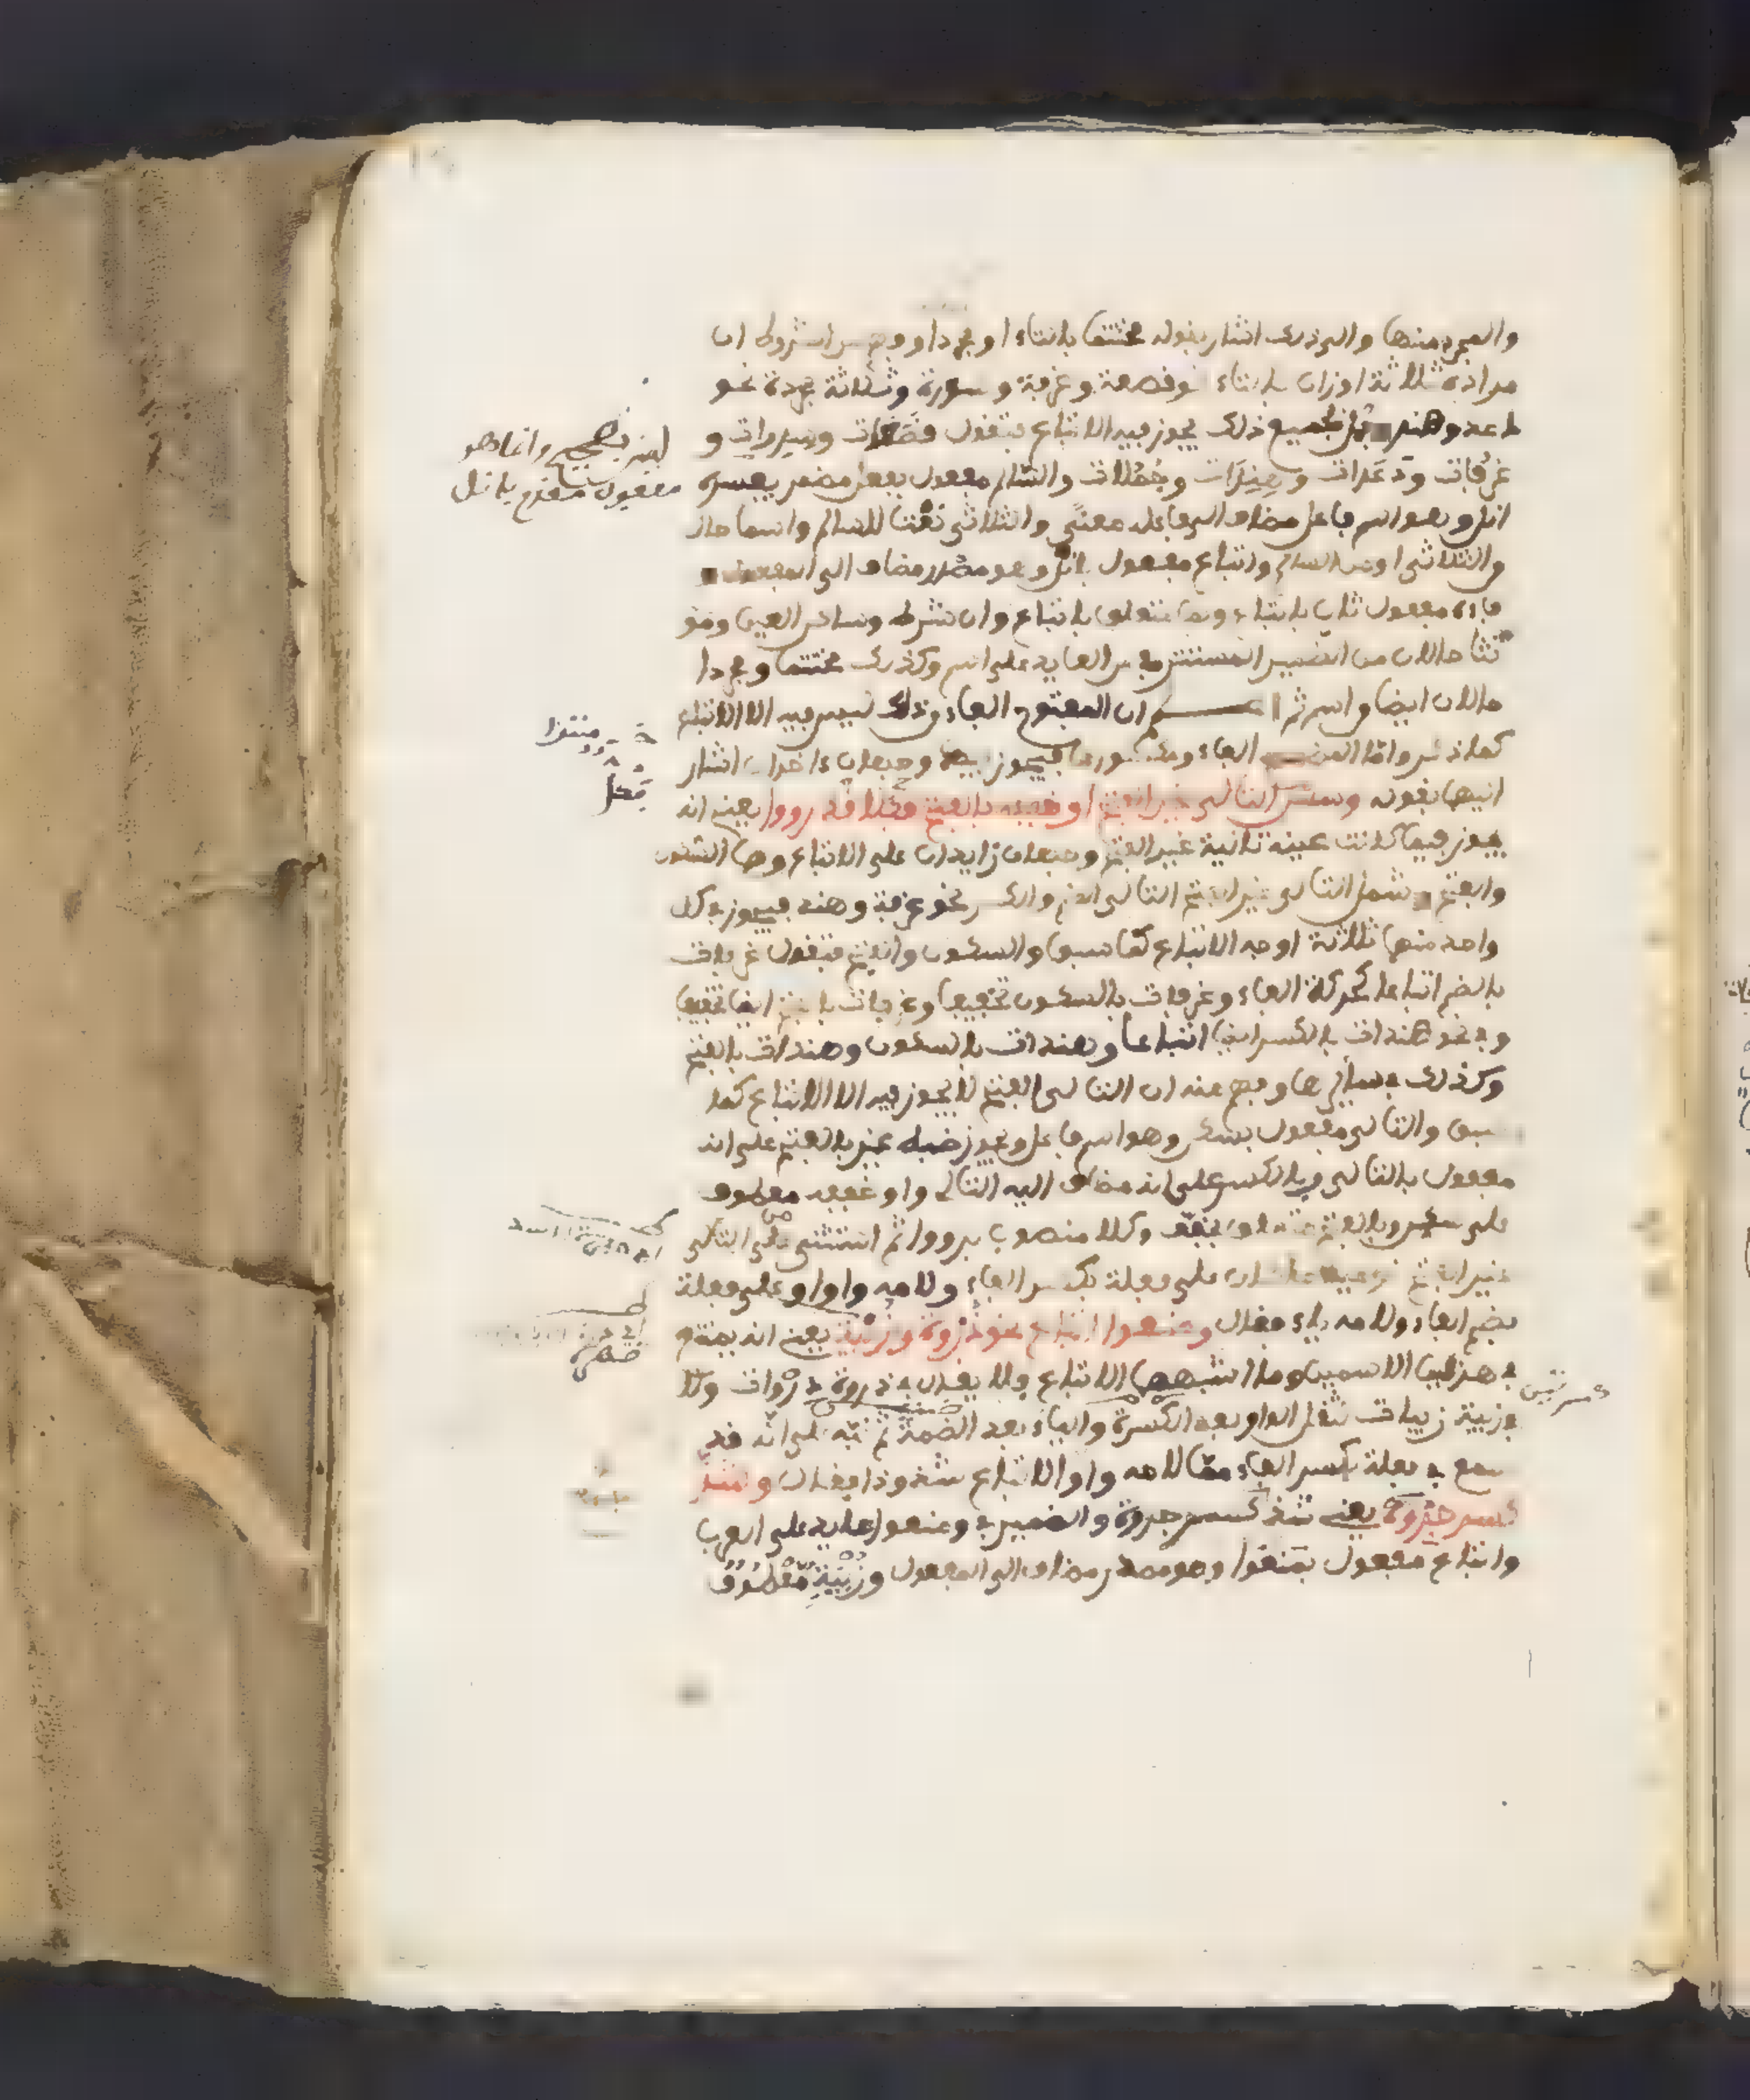 والمجرد منها والى ذلك اشار بقوله مختتما بالتاء او مجردا وفهم من الشروط ان
مراده ثلاثة اوزان بالتاء نحو قصعة وغرفة و سدرة وثلاثة مجردة نحو
دعد وهند وجمل فجميع ذلك يجوز فيه الاتباع فتقول قصعات وسدرات و
غرفات ودعدات وهندات وجملات والسالم مفعول بفعل مضمر يفسره
انل وهو اسم فاعل مضاف الى فاعله معنى والثلاثي نعتا للسالم واسما حال
والثلاثي او من السالم واتباع مفعول بانل وهو مصدر مضاف الى المفعول
فاءه مفعول ثان باتباع وبما متعلق باتباع وان شرط وساكن العين ومو
نثا حالان من الضمير المستتر في بدا العايد على اسم وكذلك مختتما ومجردا
حالان ايضا واسم ثم ان المفتوح الفاء وذلك ليس فيه الا الاتباع
كما ذكر واما المضموم الفاء ومكسورها فيجوز فيها وجهان ءاخران اشار
اليهما بقوله وسكن التالي غير الفتح او خففه بالفتح فكلا قد رووا يعني انه
يجوز فيما كانت عينه تالية غير الفتح وجهان زايدان على الاتباع وهما السكون
والفتح وشمل التالي غير الفتح التالي الضم والكسر نحو غرفة وهند فيجوز في كل
واحد منهما ثلاثة اوجه الاتباع كما سبق والسكون والفتح فتقول غرفات
بالضم اتباعا لحركة الفاء وغرفات بالسكون تخفيفا وغرفات بالفتح ايضا تخفيفا
وفي نحو هندات بالكسر ايضا اتباعا وهندات بالسكون وهندات بالفتح
وكذلك في سائرها وفهم منه ان التالي الفتح لا يجوز فيه الا الاتباع كما
سبق والتالي مفعول بسكن وهو اسم فاعل ويجوز ضبط غير بالفتح على انه
مفعول بالتالي وبالكسر على انه مضاف اليه التالي واو خففه معطوف
على سكن وبالفتح متعلق بخففه وكلا منصوب برووا ثم استثنى من التالي
غير الفتح نوعين على فعلة بكسر الفاء ولامه واو او على فعلة
بضم الفاء ولامه ياء فقال ومنعوا اتباع نحو ذروة وزبية يعني انه يمتنع
في هذين الاسمين وما اشبههما الاتباع فلا يقال في ذروة ذروات ولا
في زبية زبيات لثقل الواو بعد الكسرة والياء بعد الضمة ثم نبه على انه قد
سمع في فعلة بكسر الفاء مما لامه واو الاتباع شذوذا فقال وشذ
كسر جروة يعني شذ كسر جروة والضمير في ومنعوا عايد على العرب
واتباع مفعول بمنعوا وهو مصدر مضاف الى المفعول وزبية معطوف
ليس بصحيح وانما هو
مفعول مقدم بانل